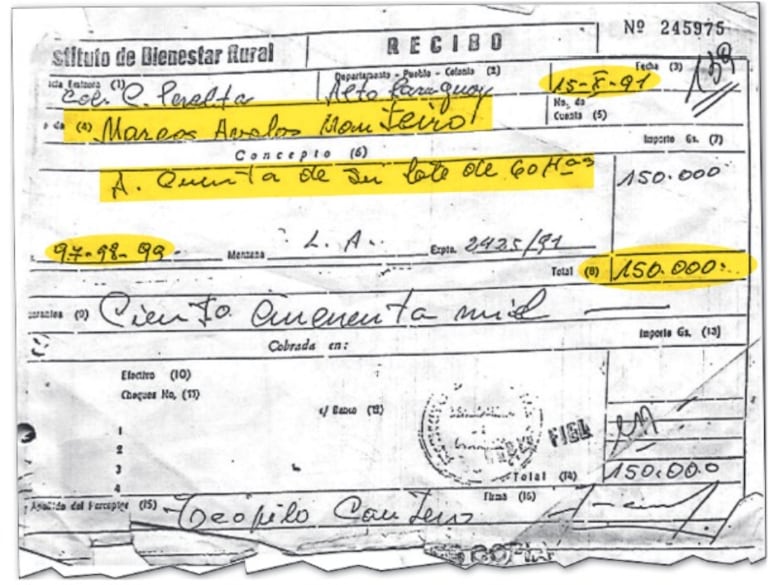 Nº 245975
stituto de Bienestar Rural RECIBO
139
Departamento - Pueblo - Colonia (2) Fecha (3)
Col. C. Peralta Alto Paraguay 15-X-91
No. de
Cuenta (5)
(4) Marcos Avalos Monteiro
Concepto (6) Importe Gs. (7)
A. Cuenta de su lote de 60 Has 150.000
97-98-99- Manzana L.A. Expte. 2425/91
Total (8) 150.000
(9) Ciento cincuenta mil
Cobrado en: Importe Gs. (13)
Efectivo (10)
Cheques No. (11)
c/ Banco (12)
1
2
3
4
FIEL
Total (14) 150.000
Apellido del Perceptor (15) Firma (16)
Teofilo